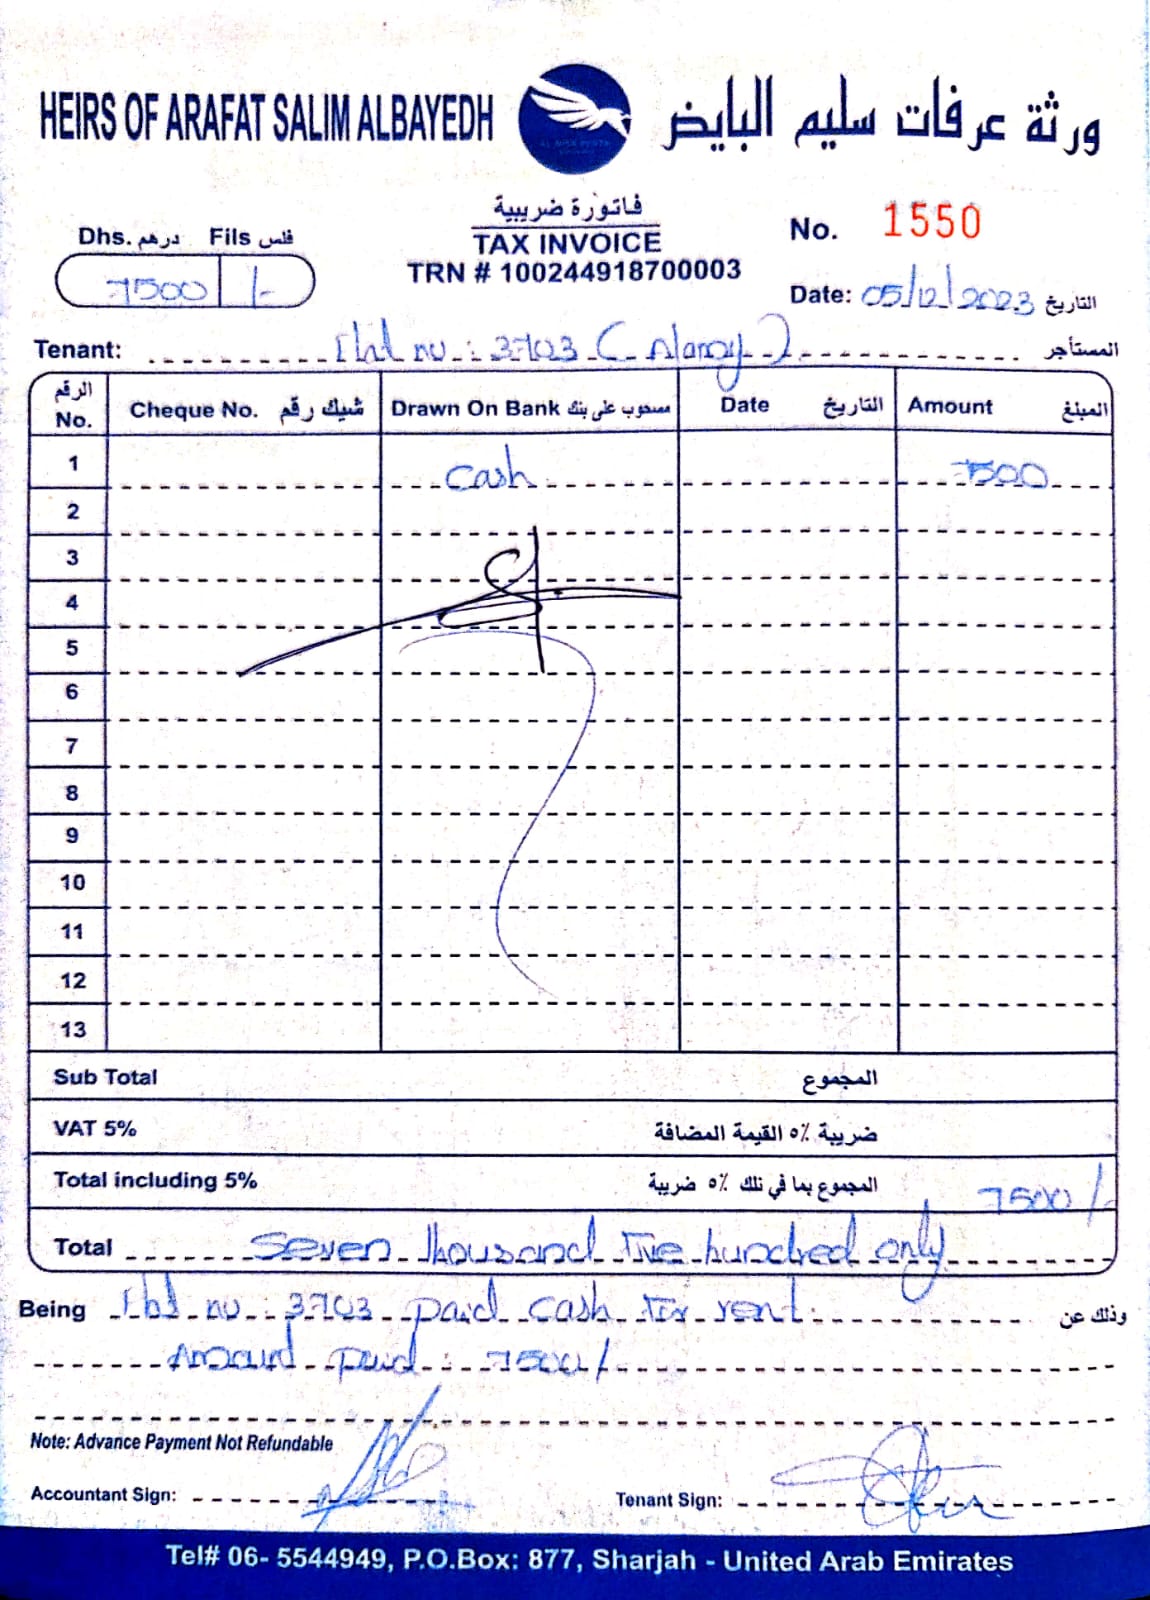 HEIRS OF ARAFAT SALIM ALBAYEDH
ورثة عرفات سليم البايض
فاتورة ضريبية
TAX INVOICE
TRN # 100244918700003
Dhs. درهم Fils فلس
7500 /-
No. 1550
Date: 05/12/2023 التاريخ
Tenant: Flat no : 3703 ( ) المستأجر
الرقم No. Cheque No. شيك رقم Drawn On Bank مسحوب على بنك Date التاريخ Amount المبلغ
1 Cash 7500
2
3
4
5
6
7
8
9
10
11
12
13
Sub Total المجموع
VAT 5% ضريبة ٥٪ القيمة المضافة
Total including 5% المجموع بما في تلك ٥٪ ضريبة 7500/-
Total Seven thousand five hundred only
Being Flat no : 3703 paid cash for rent. وذلك عن
Amount paid : 7500/
Note: Advance Payment Not Refundable
Accountant Sign:
Tenant Sign:
Tel# 06- 5544949, P.O.Box: 877, Sharjah - United Arab Emirates